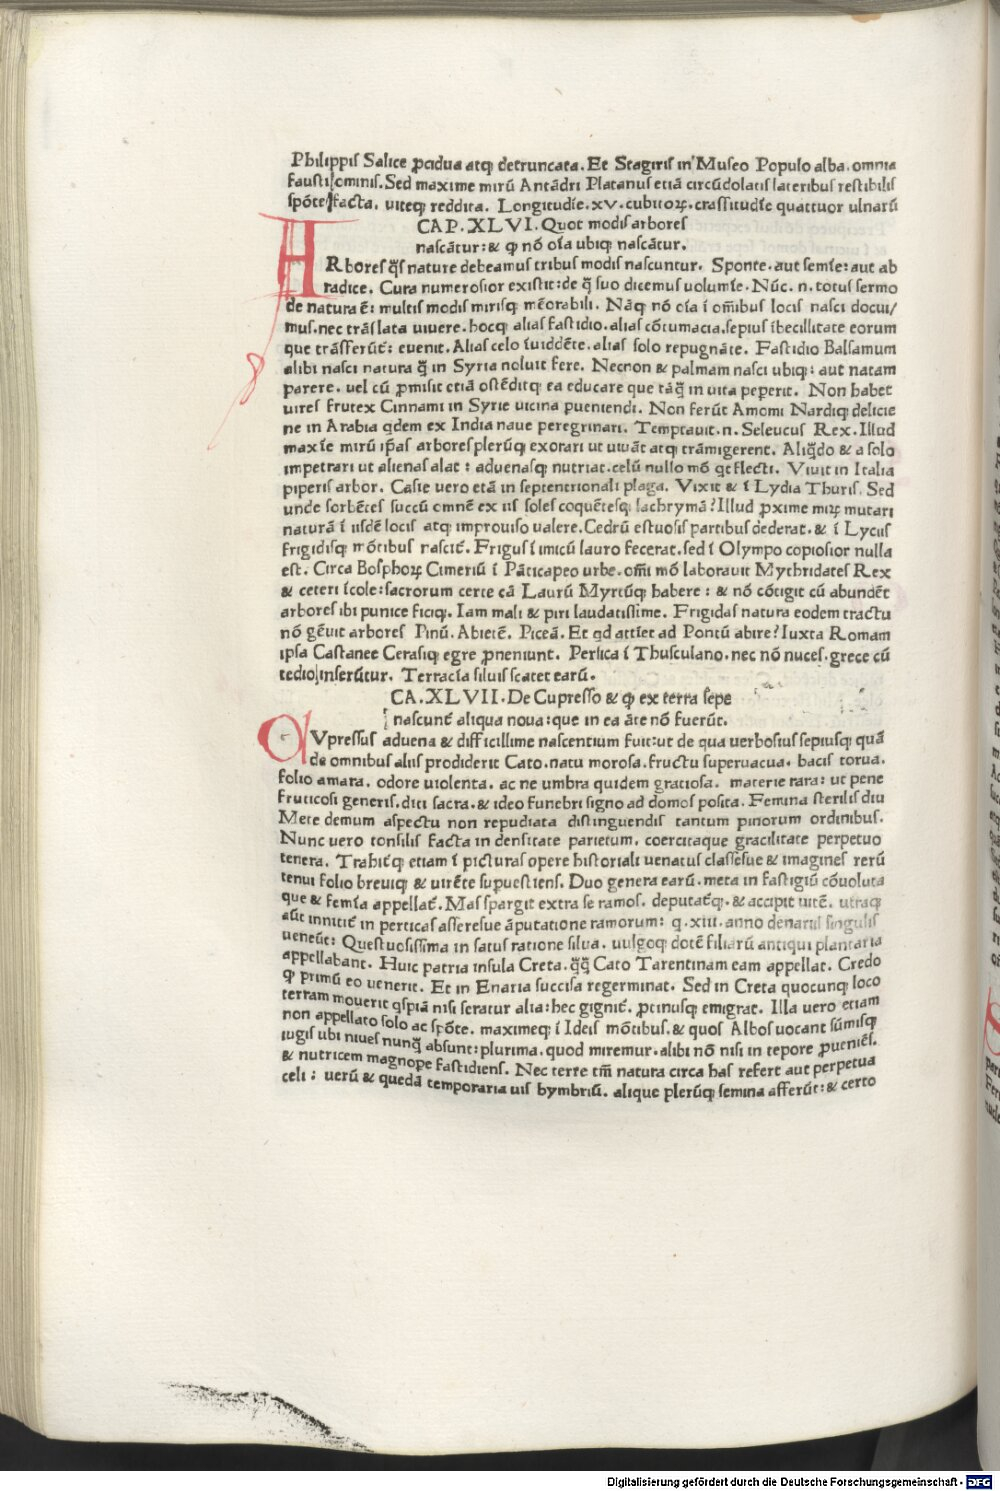 Philippis Salice ꝓcidua atqꝫ detruncata. Et Stagiris in Museo Populo alba. omnia
fausti ominis. Sed maxime mirū Antādri Platanus etiā circūdolatis lateribus restibilis
spōte facta. uiteqꝫ reddita. Longitudīe. xv. cubitoꝝ. crassitudīe quattuor ulnarū
CAP. XLVI. Quot modis arbores
nascātur: & ꝙ nō oīa ubiqꝫ nascātur.
ARbores q̄s nature debeamus tribus modis nascuntur. Sponte. aut semīe: aut ab
radice. Cura numerosior existit: de q̄ suo dicemus uolumīe. Nūc. n. totus sermo
de natura ē: multis modis mirisqꝫ mēorabili. Nāqꝫ nō oīa ī oībus locis nasci docui/
mus. nec trāslata uiuere. hocqꝫ alias fastidio. alias cōtumacia. sepius ībecillitate eorum
que trāsferūt̄: euenit. Alias celo īuidēte. alias solo repugnāte. Fastidio Balsamum
alibi nasci natura q̄ in Syria noluit fere. Necnon & palmam nasci ubiqꝫ: aut natam
parere. uel cū ꝓmisit etiā ostēditqꝫ ea educare que tāq̄ in uita peperit. Non habet
uires frutex Cinnami in Syrie uicina pueniendi. Non ferūt Amomi Nardiqꝫ delicie
ne in Arabia qdem ex India naue peregrinari. Temptauit. n. Seleucus Rex. Illud
maxīe mirū ip̄as arbores plerūqꝫ exorari ut uiuāt atqꝫ trāmigerent. Aliq̄do & a solo
impetrari ut alienas alat: aduenasqꝫ nutriat. celū nullo mō qt flecti. Viuit in Italia
piperis arbor. Casie uero etā in septentrionali plaga. Vixit & ī Lydia Thuris. Sed
unde sorbētes succū omnē ex iis soles coquētesqꝫ lachrymā? Illud ꝓxime miꝝ mutari
naturā ī iisdē locis atqꝫ improuiso ualere. Cedrū estuosis partibus dederat. & ī Lyciis
frigidisqꝫ mōtibus nascit̄. Frigus īimicū lauro fecerat. sed ī Olympo copiosior nulla
est. Circa Bosphoꝝ Cimeriū ī Pāticapeo urbe. om̄i mō laborauit Mythridates Rex
& ceteri īcole: sacrorum certe cā Laurū Myrtūqꝫ habere: & nō cōtigit cū abundēt
arbores ibi punice ficiqꝫ. Iam mali & piri laudatissime. Frigidas natura eodem tractu
nō gēuit arbores Pinū. Abietē. Piceā. Et qd attīet ad Pontū abire? Iuxta Romam
ipsa Castanee Cerasiqꝫ egre ꝓneniunt. Persica ī Thusculano. nec nō nuces. grece cū
tedio inserūtur. Terracīa siluis scatet earū.
CA. XLVII. De Cupresso & ꝙ ex terra sepe
nascunt̄ aliqua noua: que in ea āte nō fuerūt.
CVpressus aduena & difficillime nascentium fuit: ut de qua uerbosius sepiusqꝫ quā
de omnibus aliis prodiderit Cato. natu morosa. fructu superuacua. bacis torua.
folio amara. odore uiolenta. ac ne umbra quidem gratiosa. materie rara: ut pene
fruticosi generis. diti sacra. & ideo funebri signo ad domos posita. Femina sterilis diu
Mete demum aspectu non repudiata distinguendis tantum pinorum ordinibus.
Nunc uero tonsilis facta in densitate parietum. coercitaque gracilitate perpetuo
tenera. Trahit̄qꝫ etiam ī picturas opere historiali uenatus classesue & imagines rerū
tenui folio breuiqꝫ & uirēte supuestiens. Duo genera earū. meta in fastigiū cōuoluta
que & femīa appellat̄. Mas spargit extra se ramos. deputat̄qꝫ. & accipit uitē. utraqꝫ
aūt innitit̄ in perticas asseresue āputatione ramorum: q. xiii. anno denariis singulis
ueneūt: Questuosissima in satus ratione silua. uulgoqꝫ dotē filiarū antiqui plantaria
appellabant. Huic patria insula Creta. q̄q̄ Cato Tarentinam eam appellat. Credo
ꝙ primū eo uenerit. Et in Enaria succisa regerminat. Sed in Creta quocunqꝫ loco
terram mouerit qspiā nisi seratur alia: hec gignit̄. ꝓtinusqꝫ emigrat. Illa uero etiam
non appellato solo ac spōte. maximeqꝫ ī Ideis mōtibus. & quos Albos uocant sūmisqꝫ
iugis ubi niues nunq̄ absunt: plurima. quod miremur. alibi nō nisi in tepore ꝓueniēs.
& nutricem magnope fastidiens. Nec terre tm̄ natura circa has refert aut perpetua
celi: uerū & quedā temporaria uis hymbriū. alique plerūqꝫ semina afferūt: & certo
Digitalisierung gefördert durch die Deutsche Forschungsgemeinschaft - DFG